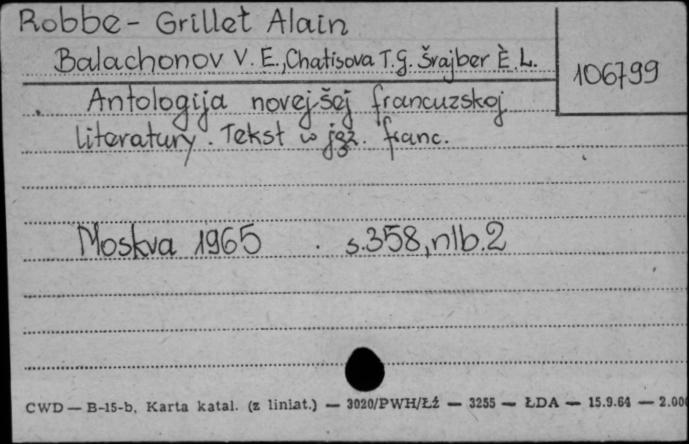 Robbe-Grillet Alain
Balachonov V. E., Chatisova T. G. Šrajber È. L.
106799
Antologija novejšej francuzskoj
literatury. Tekst w jęz. franc.
Moskva 1965 s. 358, nlb. 2
CWD — B-15-b, Karta katal. (z liniat.) — 3020/PWH/Łź — 3255 — ŁDA — 15.9.64 — 2.000